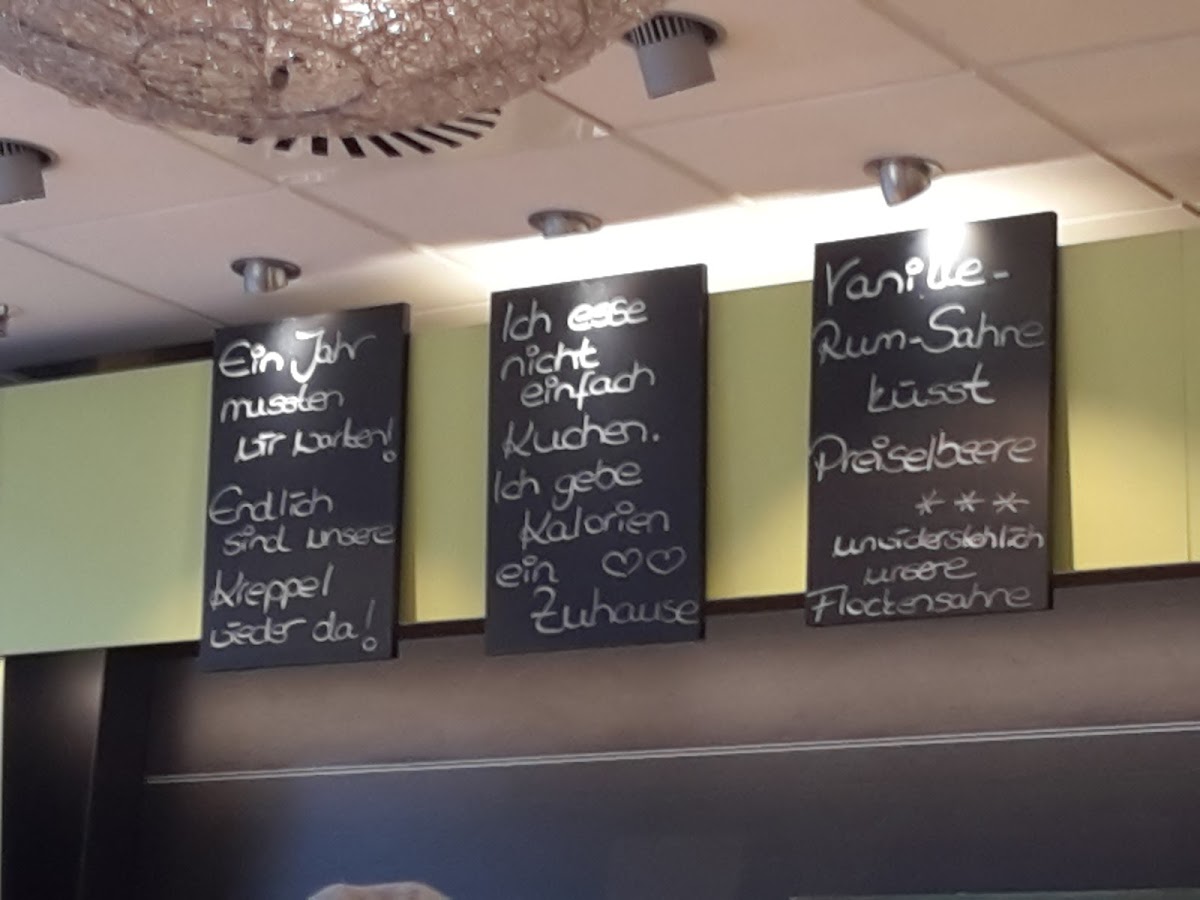 Ein Jahr
mussten
wir warten!
Endlich
sind unsere
Kreppel
wieder da!
Ich esse
nicht
einfach
Kuchen.
Ich gebe
Kalorien
ein ♡♡
Zuhause
Vanille-
Rum-Sahne
küsst
Preiselbeere
***
unwiderstehlich
unsere
Flockensahne